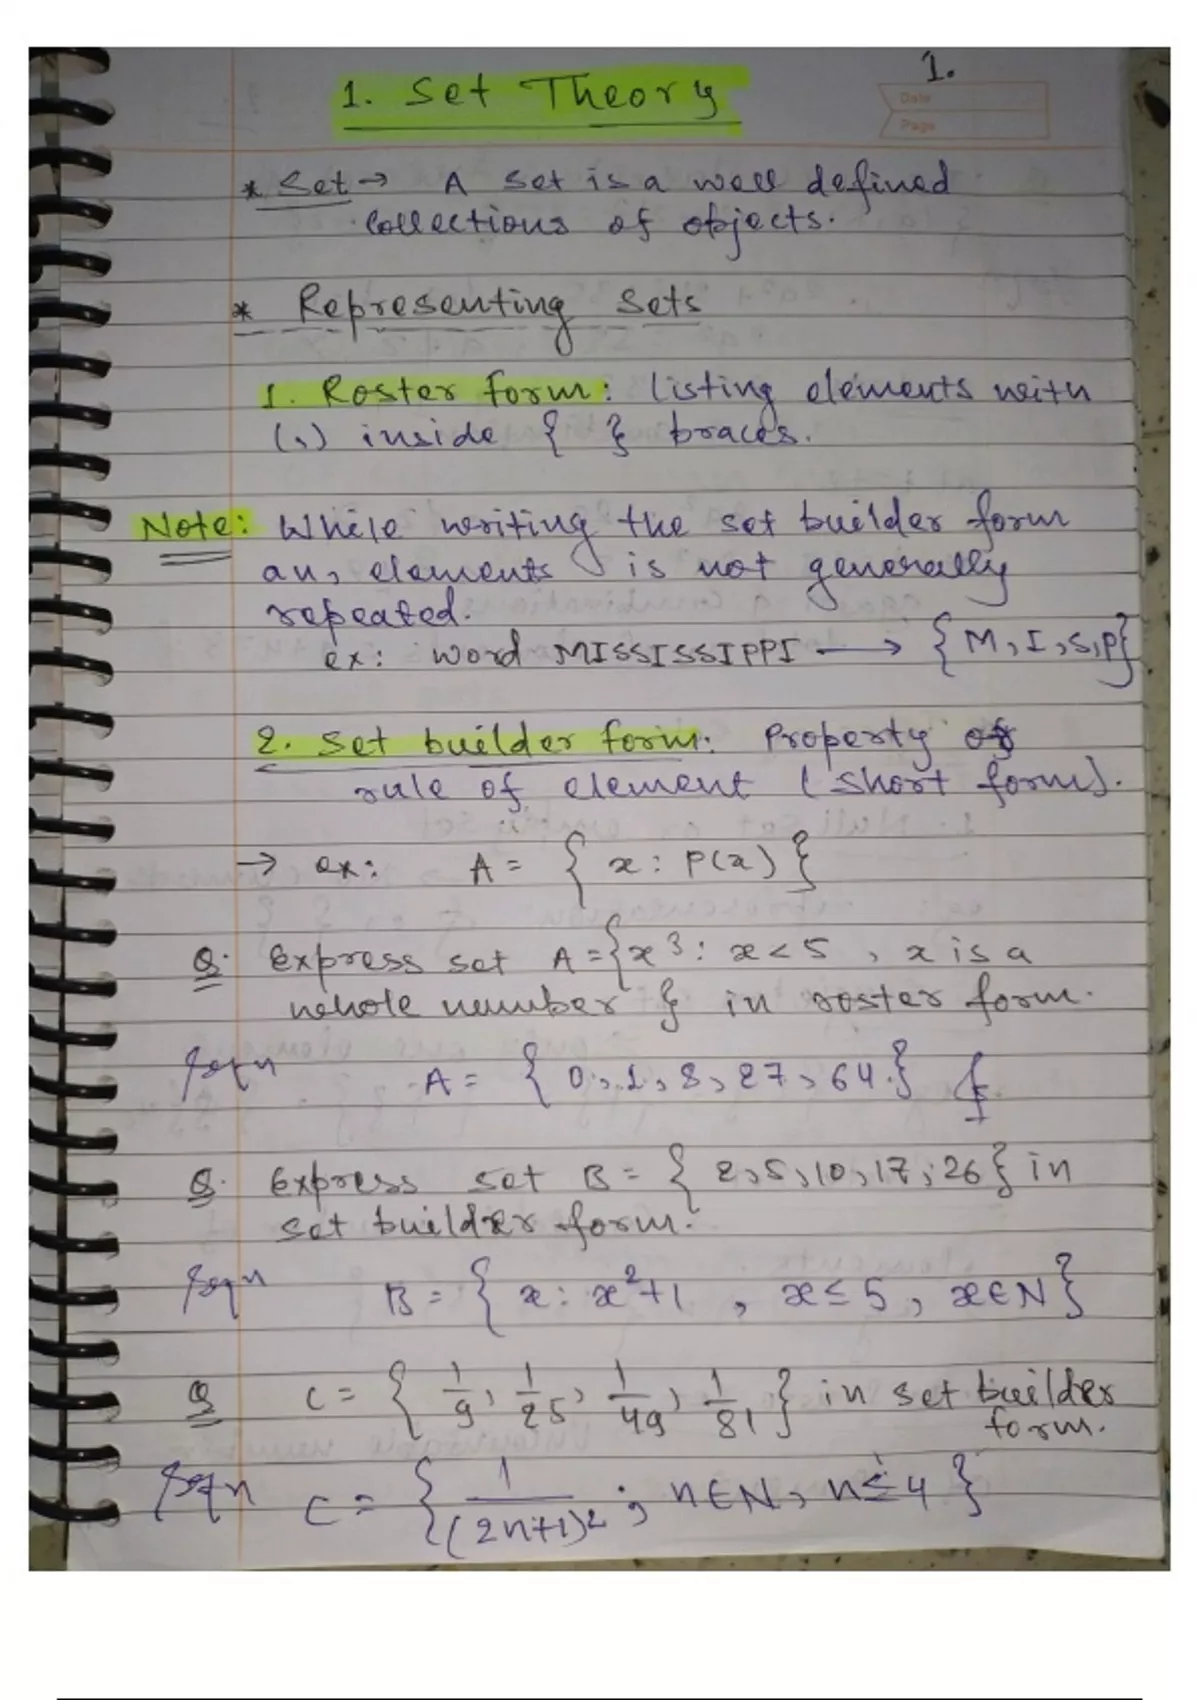 1.
Date
Page
1. Set Theory
* Set → A set is a well defined
collections of objects.
* Representing Sets
1. Roster form: listing elements with
(,) inside { } braces.
Note: While writing the set builder form
an, elements is not generally
repeated.
ex: word MISSISSIPPI → {M, I, S, P}
2. Set builder form: Property of
rule of element (short form).
→ ex: A = { x : P(x) }
Q. Express set A = {x³ : x < 5 , x is a
whole number } in roster form.
Soln A = { 0, 1, 8, 27, 64 }
Q. Express set B = { 2, 5, 10, 17, 26 } in
set builder form.
Soln B = { x : x²+1 , x ≤ 5, x ∈ N }
Q C = { 1/9, 1/25, 1/49, 1/81 } in set builder
form.
Soln C = { 1/(2n+1)² ; n ∈ N, n ≤ 4 }